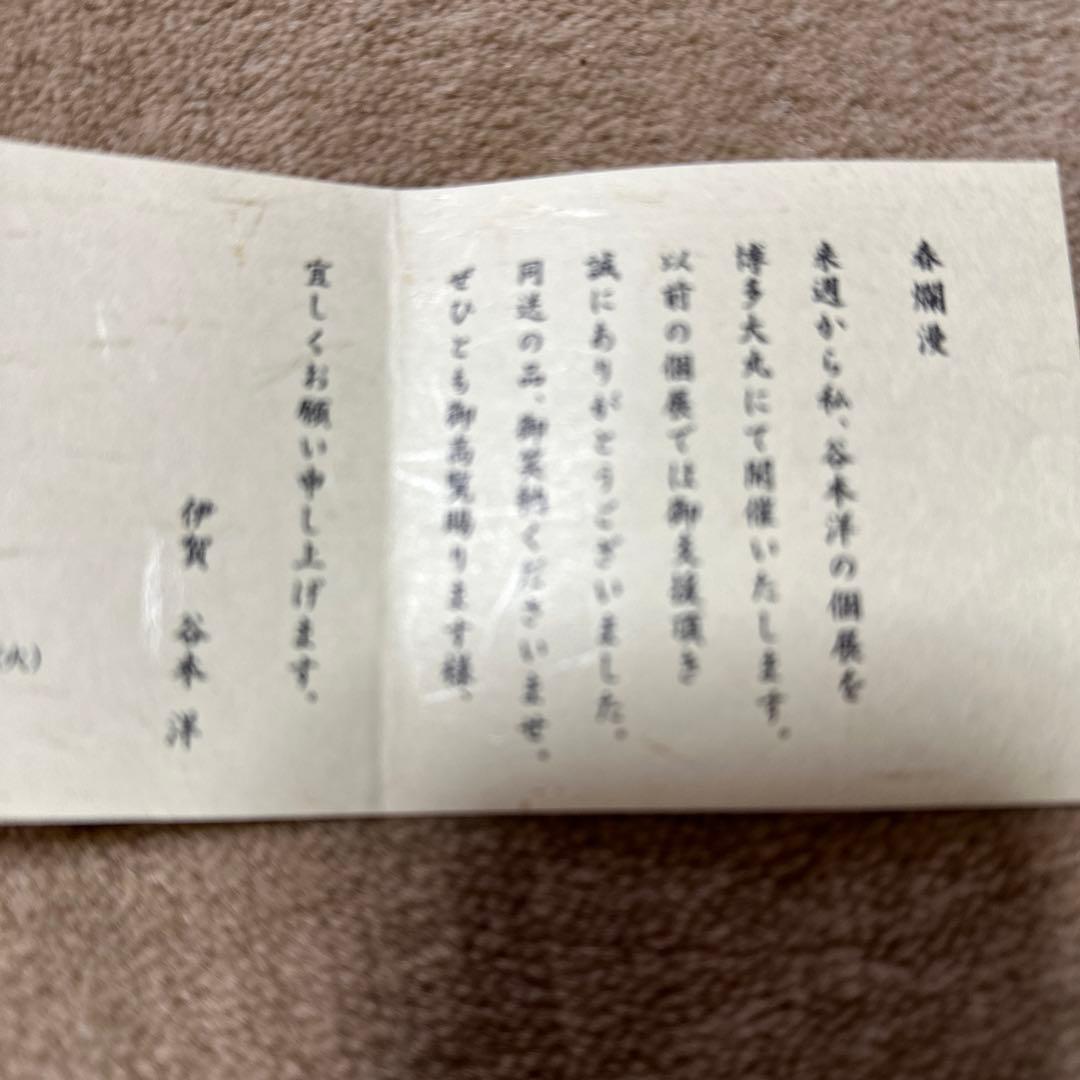 春爛漫
来週から私、谷本洋の個展を
博多大丸にて開催いたします。
以前の個展では御支援頂き
誠にありがとうございました。
同送の品、御笑納くださいませ。
ぜひとも御高覧賜ります様、
宜しくお願い申し上げます。
伊賀　谷本　洋
(火)